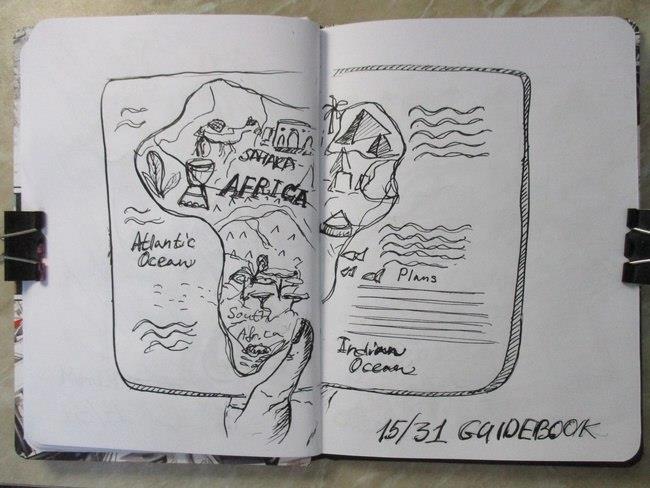 SAHARA
AFRICA
Atlantic
Ocean
South
Africa
Plans
Indian
Ocean
15/31 GUIDEBOOK